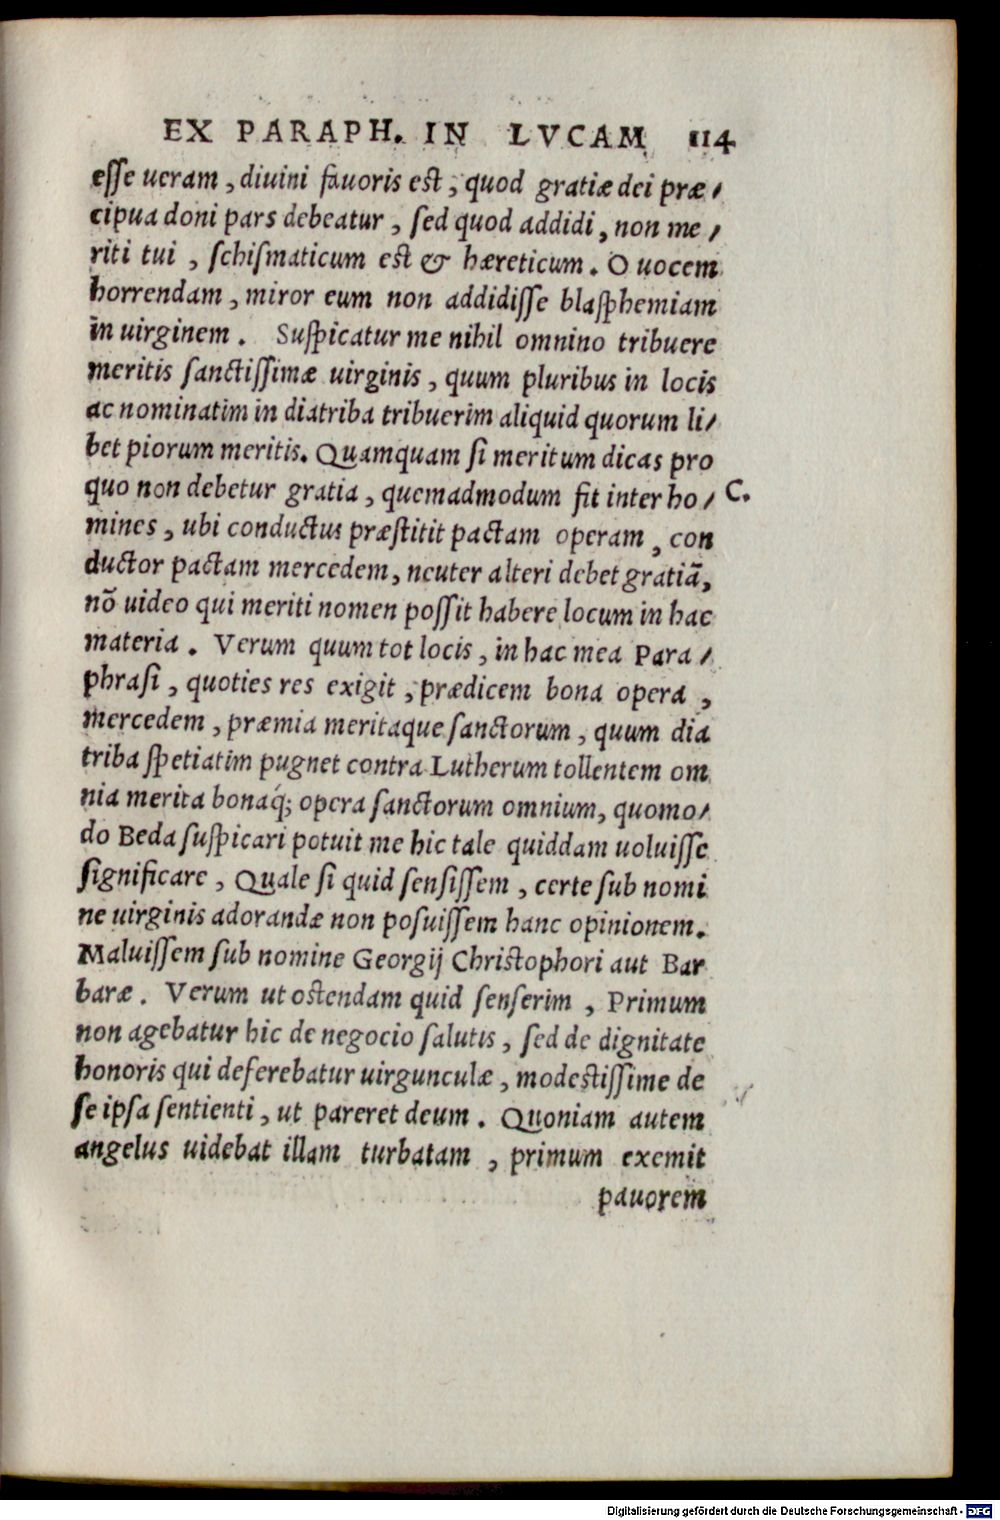 EX PARAPH. IN LVCAM 114
esse ueram, diuini fauoris est, quod gratiæ dei præ/
cipua doni pars debeatur, sed quod addidi, non me/
riti tui, schismaticum est & hæreticum. O uocem
horrendam, miror eum non addidisse blasphemiam
in uirginem. Suspicatur me nihil omnino tribuere
meritis sanctissimæ uirginis, quum pluribus in locis
ac nominatim in diatriba tribuerim aliquid quorum li/
bet piorum meritis. Quamquam si meritum dicas pro
quo non debetur gratia, quemadmodum fit inter ho/ C.
mines, ubi conductus præstitit pactam operam, con
ductor pactam mercedem, neuter alteri debet gratiã,
nõ uideo qui meriti nomen possit habere locum in hac
materia. Verum quum tot locis, in hac mea Para/
phrasi, quoties res exigit, prædicem bona opera,
mercedem, præmia meritaque sanctorum, quum dia
triba spetiatim pugnet contra Lutherum tollentem om
nia merita bonaq́; opera sanctorum omnium, quomo/
do Beda suspicari potuit me hic tale quiddam uoluisse
significare, Quale si quid sensissem, certe sub nomi
ne uirginis adorandæ non posuissem hanc opinionem.
Maluissem sub nomine Georgij Christophori aut Bar
baræ. Verum ut ostendam quid senserim, Primum
non agebatur hic de negocio salutis, sed de dignitate
honoris qui deferebatur uirgunculæ, modestissime de
se ipsa sentienti, ut pareret deum. Quoniam autem
angelus uidebat illam turbatam, primum exemit
pauorem
Digitalisierung gefördert durch die Deutsche Forschungsgemeinschaft - DFG